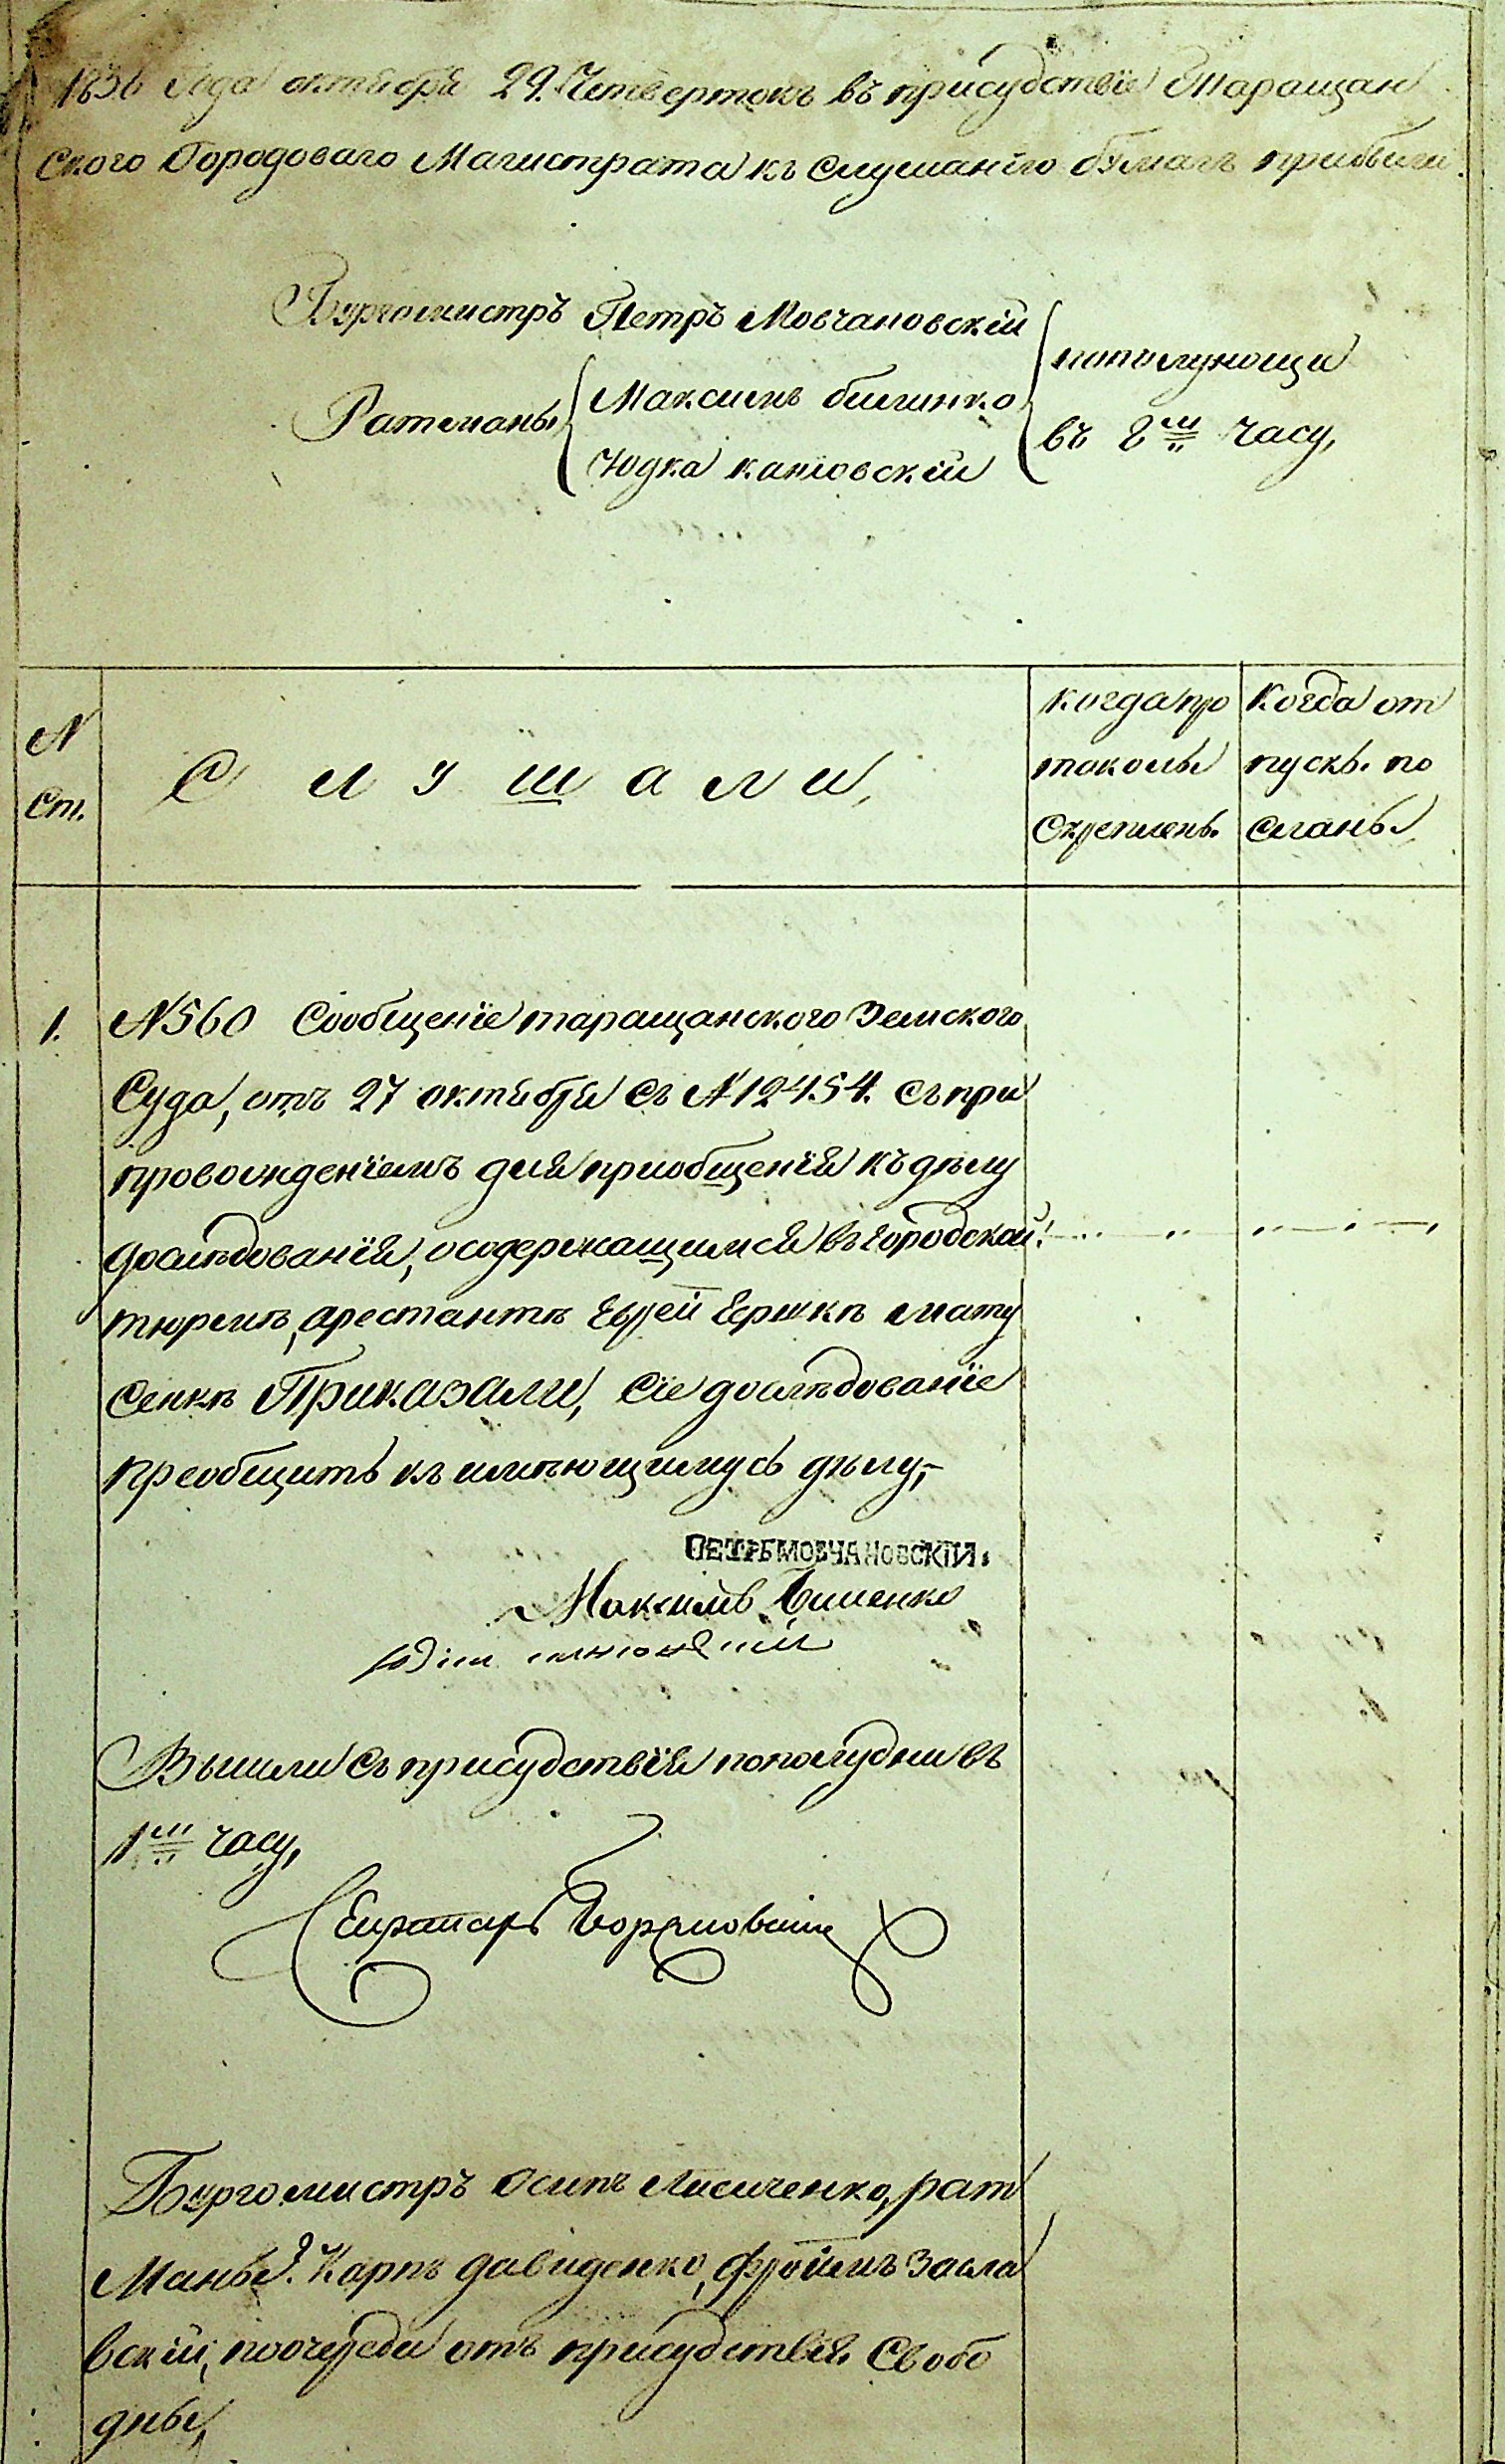 1836 года октября 29. Четвертокъ въ присудствіе Таращан
ского Городоваго Магистрата къ слушанію бумагъ прибыли.
Бургомистръ Петръ Мовчановскій
Ратманы
Максимъ билинко
Юдка каніовскій
пополуночи
въ 8м часу,
N
ст.
С л у ш а л и,
когда про
токолы
скреплены.
Когда от
пуск. по
сланы
1.
N 560 Сообщеніе таращанского Земского
Суда, отъ 27 октября съ N 12454. съ при
провожденіемъ для приобщенія къ дѣлу
дослѣдованія, осодержащимся въ городской
тюрмѣ, арестантѣ Еврей Ершкѣ мату
сенкѣ Приказали, Сіе дослѣдованіе
преобщить къ имѣющимусь дѣлу,-
ПЕТРЪ МОВЧАНОВСКІЙ.
Максимъ Билиенко
Вышли съ присудствія пополудни въ
1м часу,
Секратарь
Бургомистръ осипъ лисиченко, рат
маны. Карпъ давиденко, фроимъ Засла
вскій, поочереди отъ присудствія свобо
дны,